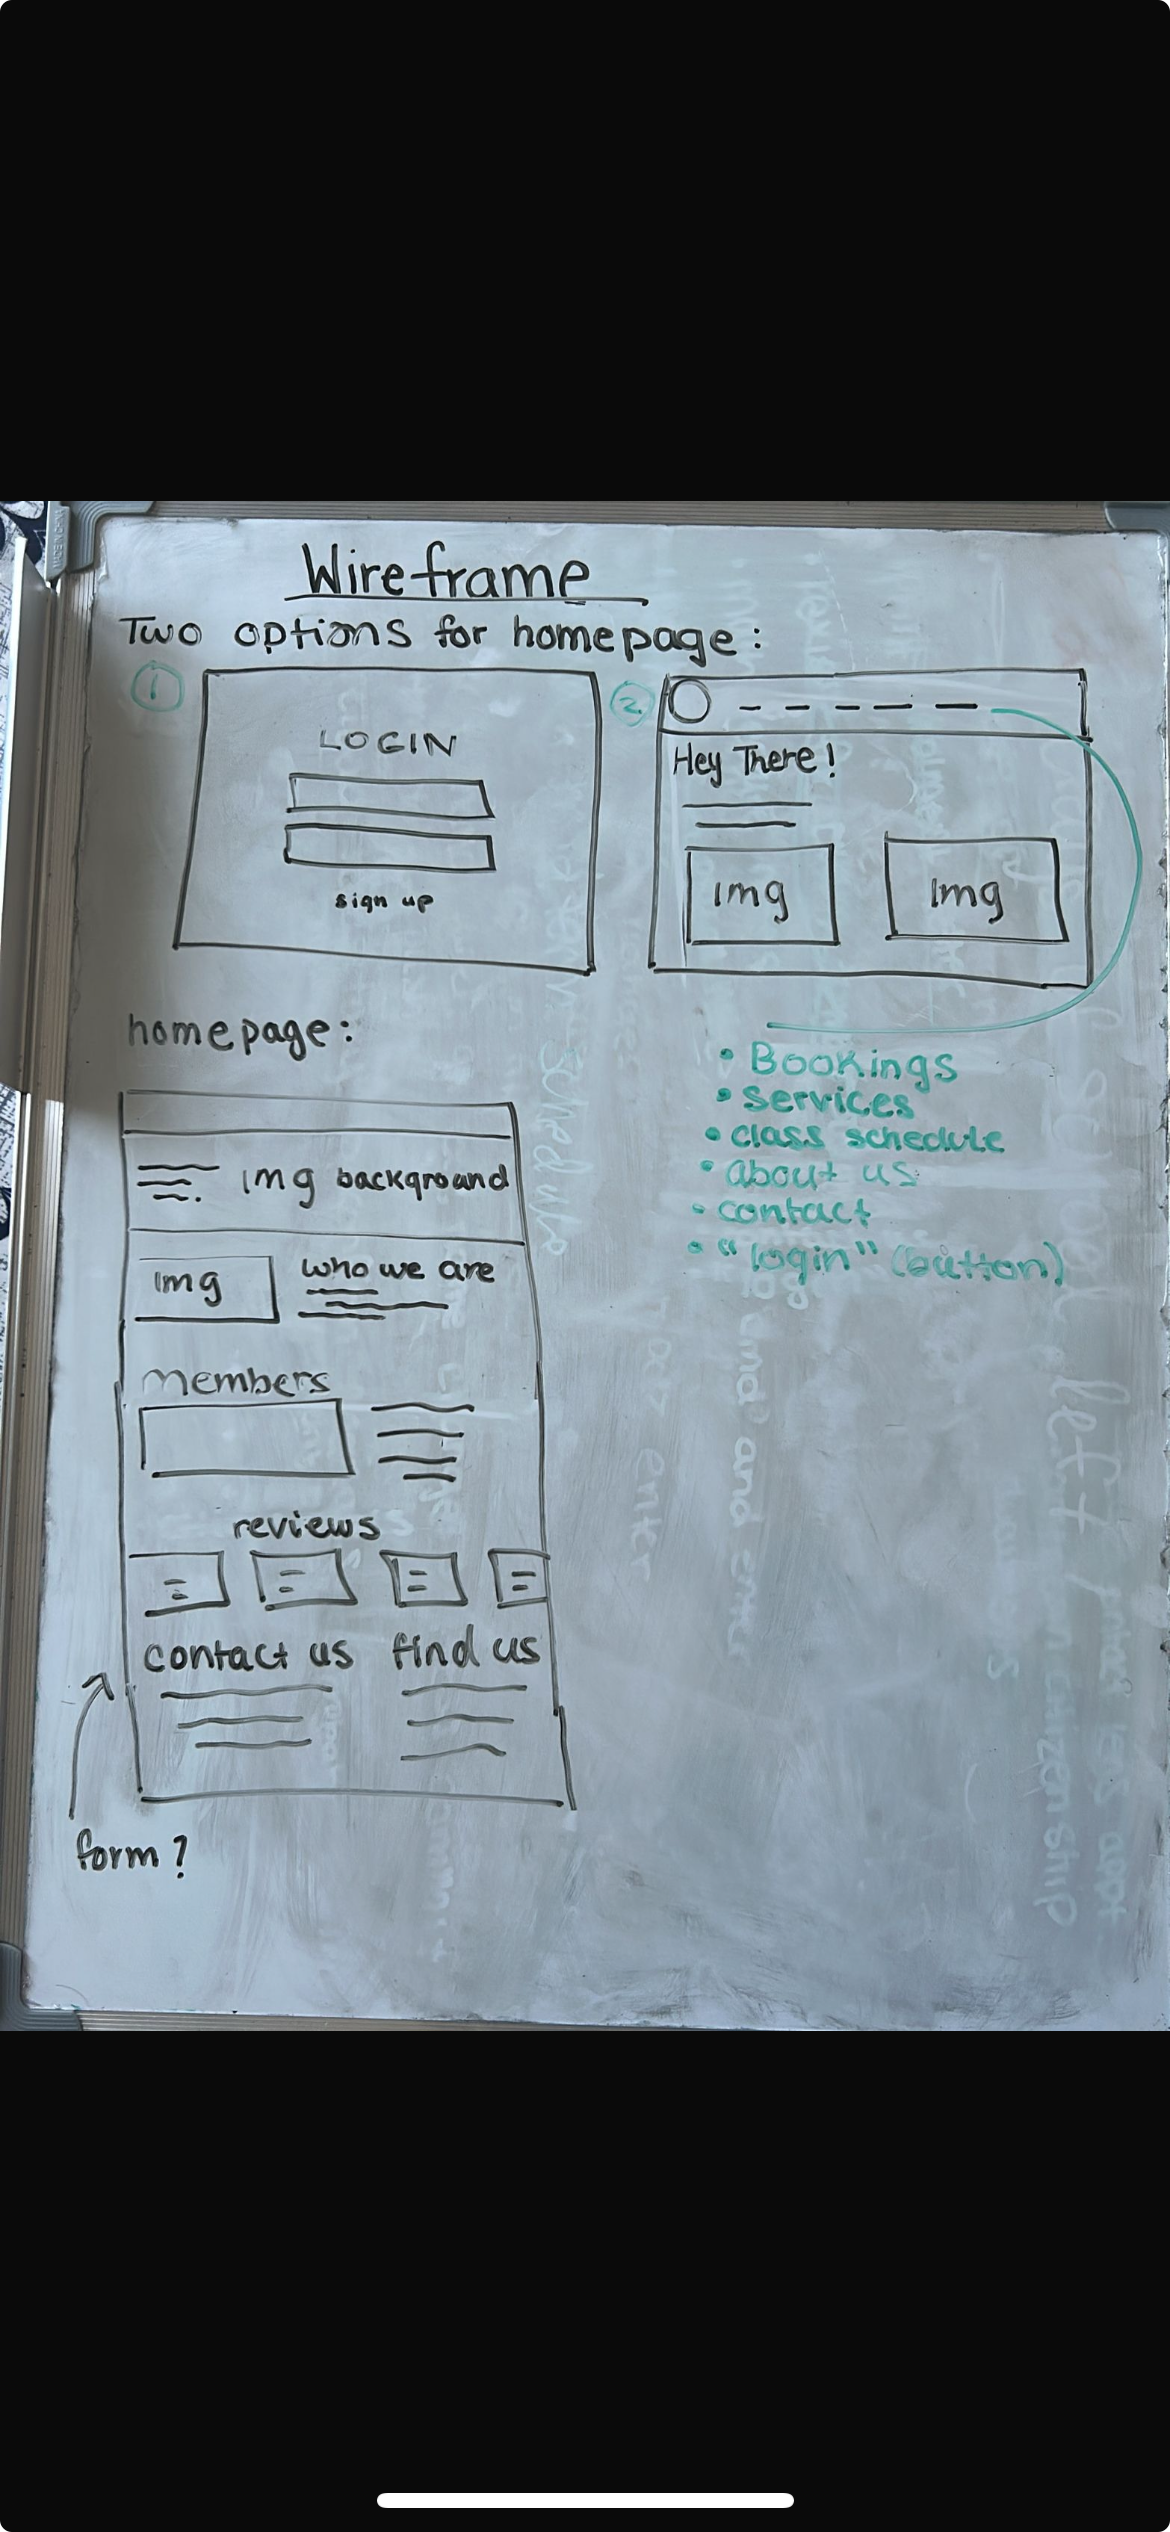 Wireframe
Two options for homepage:
1
LOGIN
sign up
2.
Hey There!
img
img
• Bookings
• services
• class schedule
• about us
• contact
• "login" (button)
homepage:
img background
img
who we are
members
reviews
contact us
find us
form?